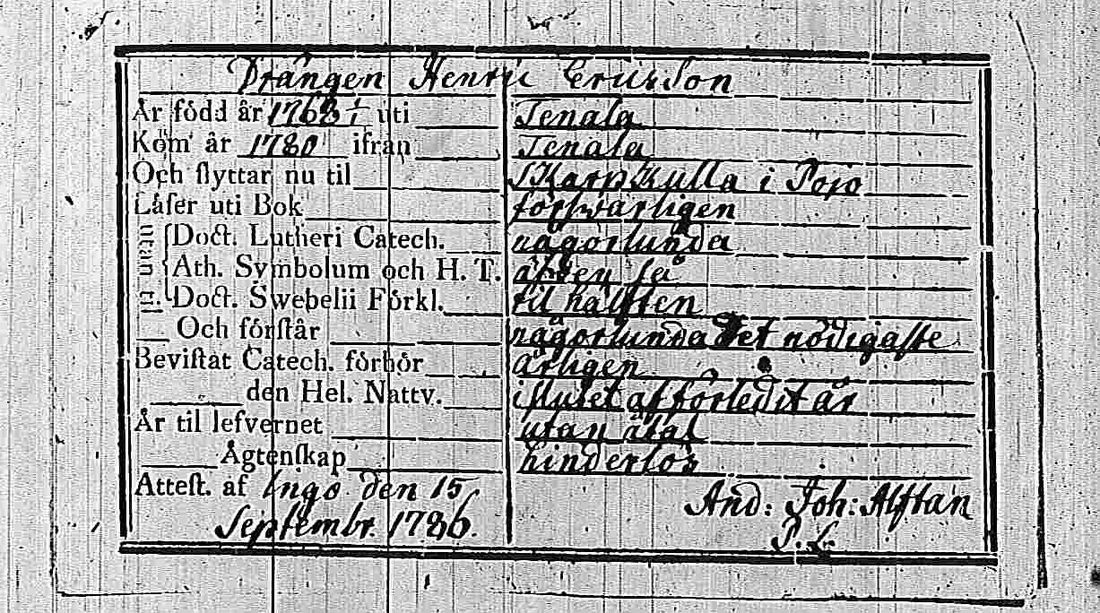 Drången Henric Ericsson
År född år 1763 / uti Tenala
Kom år 1780 ifrån Tenala
Och flyttar nu til Skarpkulla i Pojo
Låser uti Bok försvarligen
utan Doct. Lutheri Catech. någorlunda
Ath. Symbolum och H. T. äfven så
Doct. Swebelii Förkl. til hälften
Och förstår någorlunda det nödigaste
Bevistat Catech. förhör årligen
den Hel. Nattv. i slutet af förledit år
Är til lefvernet utan åtal
Ägtenskap hinderlös
Attest. af Ingo den 15 And: Joh: Alftan
Septembr. 1786. P. L.